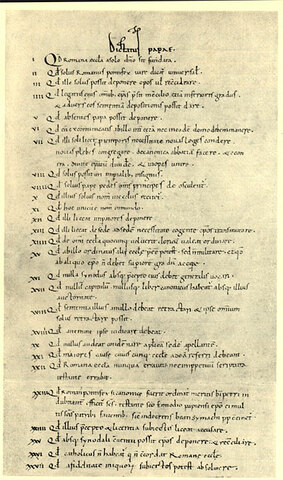 Dictatus papae.
I Qd Romana eccla a solo dno sit fundata.
II Qd solus Romanus pontifex iure dicat universal.
III Qd ille solus possit deponere epos vl reciliare.
IIII Qd legatus ei omib; epis presit in cilio etia inferioris gradus
& adversus eos sententia depositionis possit dare.
V Qd absentes papa possit deponere.
VI Qd cu excomunicatis ab illo int cetera nec in eade domo debem manere.
VII Qd illi soli licet p temporis necessitate novas leges condere
novas plebes congregare, de canonica abbatia facere & e con
tra divite epatu dividere & inopes unire.
VIII Qd solus possit uti imperialib; insigniis.
VIIII Qd solius pape pedes oms principes deosculent.
X Qd illius solius nom in ecclis recitet.
XI Qd hoc unicu e nom in mundo.
XII Qd illi liceat imperatores deponere.
XIII Qd illi liceat de sede ad sede necessitate cogente epos transmutare.
XIIII Qd de omi eccla quocunq; voluerit clericu valeat ordinare.
XV Qd ab illo ordinatus alii eccle preesse potest sed n militare; et qd
ab aliquo epo n debet superiore gradu accipe.
XVI Qd nulla synodus absq; precepto ei debet generalis vocari.
XVII Qd nullu capitulu nullusq; liber canonicus habeat absq; illius
auctoritate.
XVIII Qd sententia illius a nullo debeat retractari & ipse omium
solus retractare possit.
XVIIII Qd a nemine ipse iudicari debeat.
XX Qd nullus audeat condemnare aplica sede apellante.
XXI Qd maiores cause cuiuscunq; eccle ad ea referri debeant.
XXII Qd Romana eccla nunqua erravit nec imppetuu scriptura
testante errabit.
XXIII Qd Romanus pontifex si canonice fuerit ordinatus meritis b petri in
dubitanter efficit scs testante sco Ennodio papiensi epo ei mul
tis scis patrib; faventib; sic in decretis beati symachi pp continet.
XXIIII Qd illius precepto & licentia subiectis liceat accusare.
XXV Qd absq; synodali conventu possit epos deponere & reciliare.
XXVI Qd catholicus n habeat q n cordat Romane eccle.
XXVII Qd a fidelitate iniquoru subiectos potest absolvere.